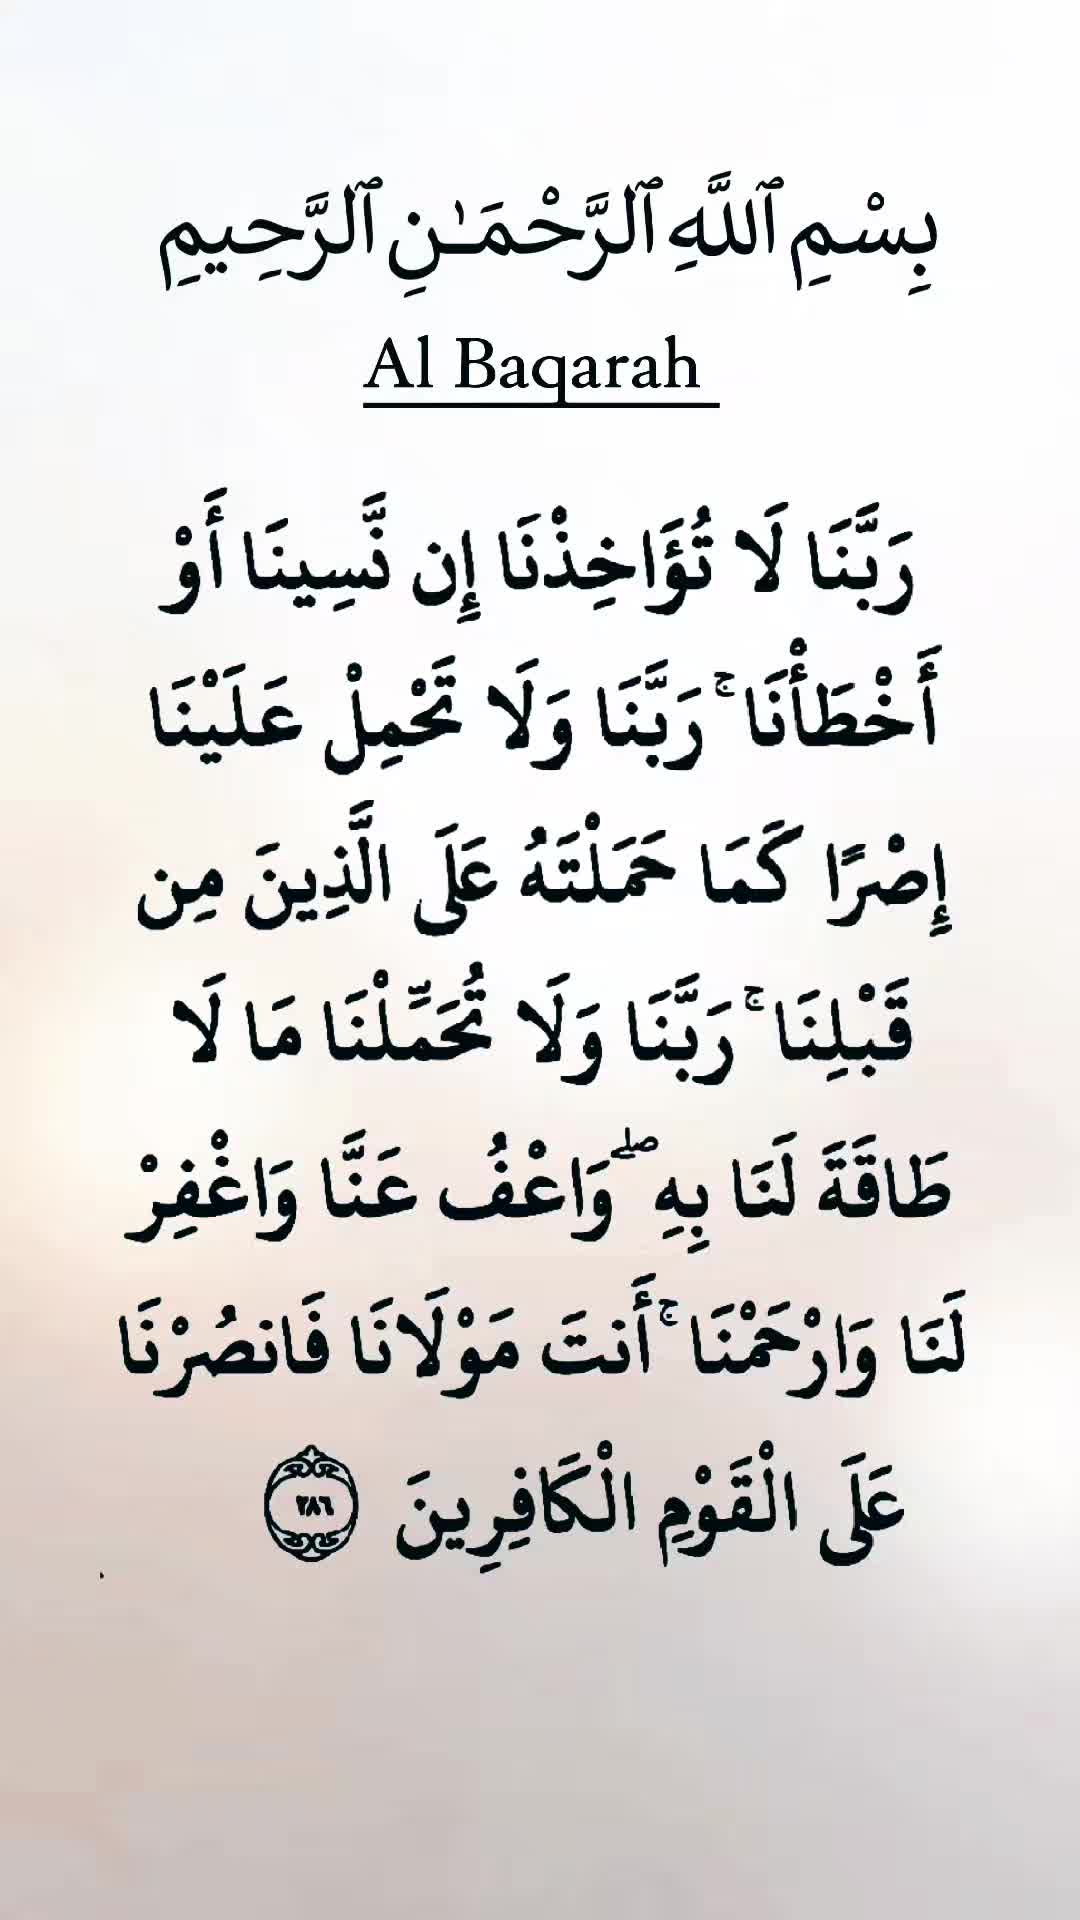 بِسْمِ ٱللَّهِ ٱلرَّحْمَـٰنِ ٱلرَّحِيمِ
Al Baqarah
رَبَّنَا لَا تُؤَاخِذْنَا إِن نَّسِينَا أَوْ
أَخْطَأْنَا ۚ رَبَّنَا وَلَا تَحْمِلْ عَلَيْنَا
إِصْرًا كَمَا حَمَلْتَهُ عَلَى الَّذِينَ مِن
قَبْلِنَا ۚ رَبَّنَا وَلَا تُحَمِّلْنَا مَا لَا
طَاقَةَ لَنَا بِهِ ۖ وَاعْفُ عَنَّا وَاغْفِرْ
لَنَا وَارْحَمْنَا ۚ أَنتَ مَوْلَانَا فَانصُرْنَا
عَلَى الْقَوْمِ الْكَافِرِينَ ٢٨٦